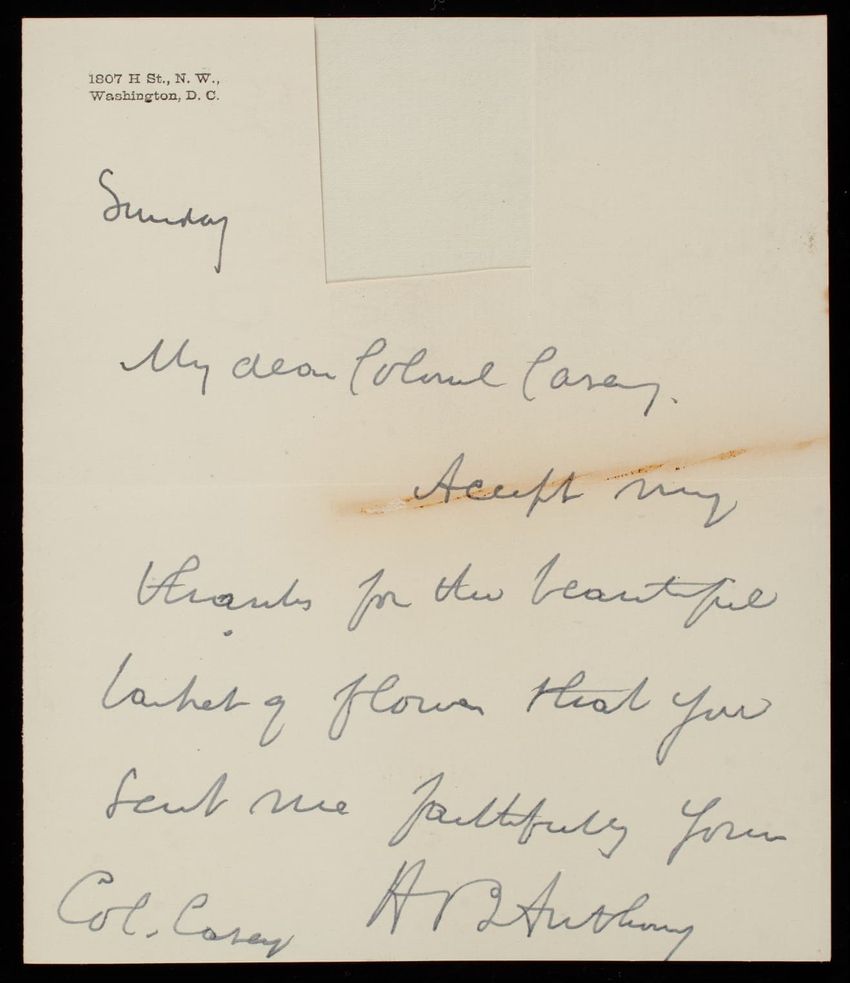 1807 H St., N. W.,
Washington, D. C.
Sunday
My dear Colonel Casey.
Accept my
thanks for the beautiful
basket of flowers that you
sent me faithfully yours
H B Anthony
Col. Casey